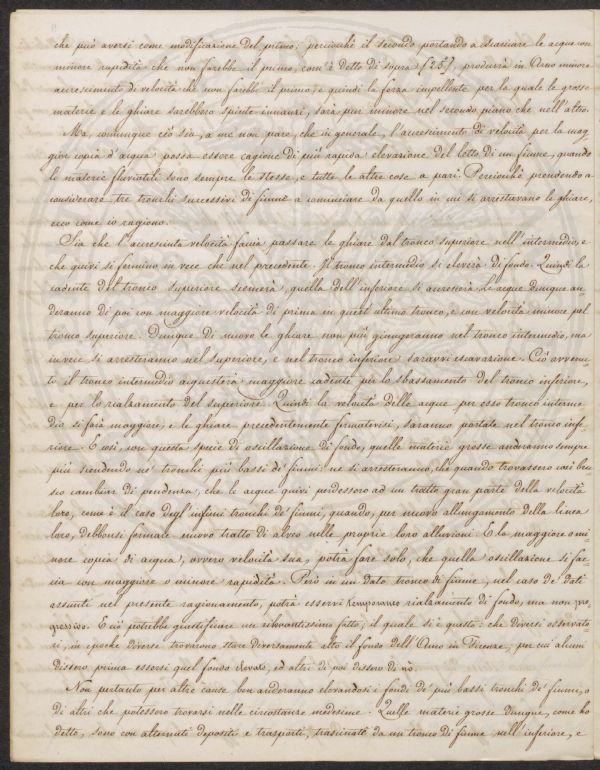 che può aversi come modificazione del primo: perciocchè il secondo portando a scaricare le acque con
minore rapidità che non farebbe il primo, com'è detto di sopra [25], produrrà in Arno minore
accrescimento di velocità che non farebbe il primo; e quindi la forza impellente per la quale le grosse
materie e le ghiare sarebbero spinte innanzi, sarà pur minore nel secondo piano che nell'altro.
Ma, comunque ciò sia, a me non pare, che in generale, l'accrescimento di velocità per la mag
gior copia d'acqua possa essere cagione di più rapida elevazione del letto di un fiume, quando
le materie fluviatili sono sempre le stesse, e tutte le altre cose a pari. Perciocchè prendendo a
considerare tre tronchi successivi di fiume a cominciare da quello in cui si arrestavano le ghiare,
ecco come io ragiono.
Sia che l'accresciuta velocità faccia passare le ghiare dal tronco superiore nell'intermedio, e
che quivi si fermino in vece che nel precedente. Il tronco intermedio si eleverà di fondo. Quindi la
cadente del tronco superiore scemerà, quella dell'inferiore si accrescerà. Le acque dunque an
deranno di poi con maggiore velocità di prima in quest'ultimo tronco, e con velocità minore pel
tronco superiore. Dunque di nuovo le ghiare non più giungeranno nel tronco intermedio, ma
invece si arresteranno nel superiore, e nel tronco inferiore saravvi escavazione. Ciò avvenu
to il tronco intermedio acquisterà maggiore cadente per lo sbassamento del tronco inferiore,
e per lo rialzamento del superiore. Quindi la velocità delle acque per esso tronco interme
dio si farà maggiore, e le ghiare precedentemente fermatevisi, saranno portate nel tronco infe
riore. E così, con questa specie di oscillazione di fondo, quelle materie grosse anderanno sempre
più scendendo ne' tronchi più bassi de' fiumi: nè si arresteranno, che quando trovassero così bru
sco cambiar di pendenza, che le acque quivi perdessero ad un tratto gran parte della velocità
loro, come è il caso degl'infimi tronchi de' fiumi, quando, per nuovo allungamento della linea
loro, debbonsi formare nuovo tratto di alveo nelle proprie loro alluvioni. E la maggiore o mi
nore copia di acqua, ovvero velocità sua, potrà fare solo, che quella oscillazione si fac
cia con maggiore o minore rapidità. Però in un dato tronco di fiume, nel caso de' dati
assunti nel presente ragionamento, potrà esservi temporaneo rialzamento di fondo, ma non pro
gressivo. E ciò potrebbe giustificare un rilevantissimo fatto, il quale si è questo: che diversi osservato
ri, in epoche diverse trovarono stare diversamente alto il fondo dell'Arno in Firenze, per cui alcuni
dissero prima essersi quel fondo elevato, ed altri di poi dissero di nò.
Non pertanto per altre cause ben anderanno elevandosi i fondi de' più bassi tronchi de' fiumi, o
di altri che potessero trovarsi nelle circostanze medesime. Quelle materie grosse dunque, come ho
detto, sono con alternati depositi e trasporti, trascinate da un tronco di fiume nell'inferiore, e